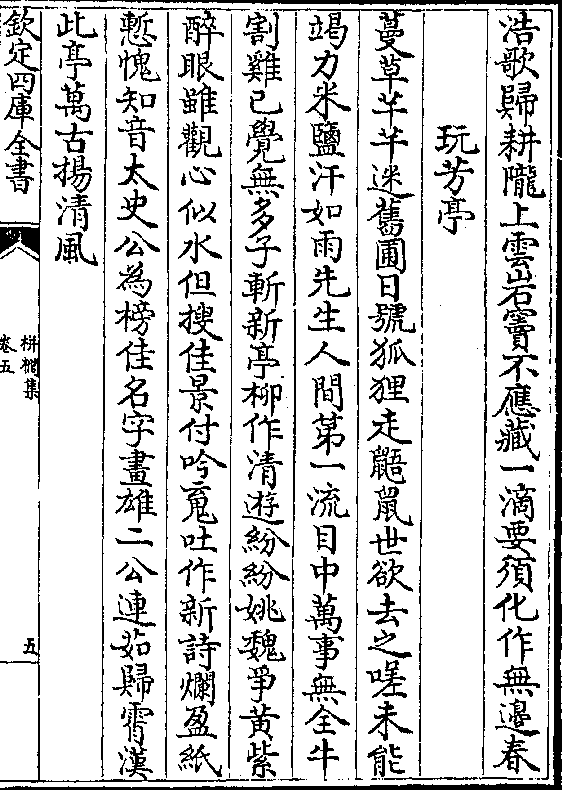 浩歌歸耕隴上雲岩竇不應藏一滴要須化作無邉春
玩芳亭
蔓草芊芊迷舊圃日號狐狸走鼯鼠世欲去之嗟未能
竭力米鹽汗如雨先生人間第一流目中萬事無全牛
割雞已覺無多子斬新亭柳作清逰紛紛姚魏爭黃紫
醉眼雖觀心似水但搜佳景付吟寬吐作新詩爛盈紙
慙愧知音太史公為榜佳名字畫雄二公連茹歸霄漢
此亭萬古揚清風
欽定四庫全書
栟櫚集
卷五
五